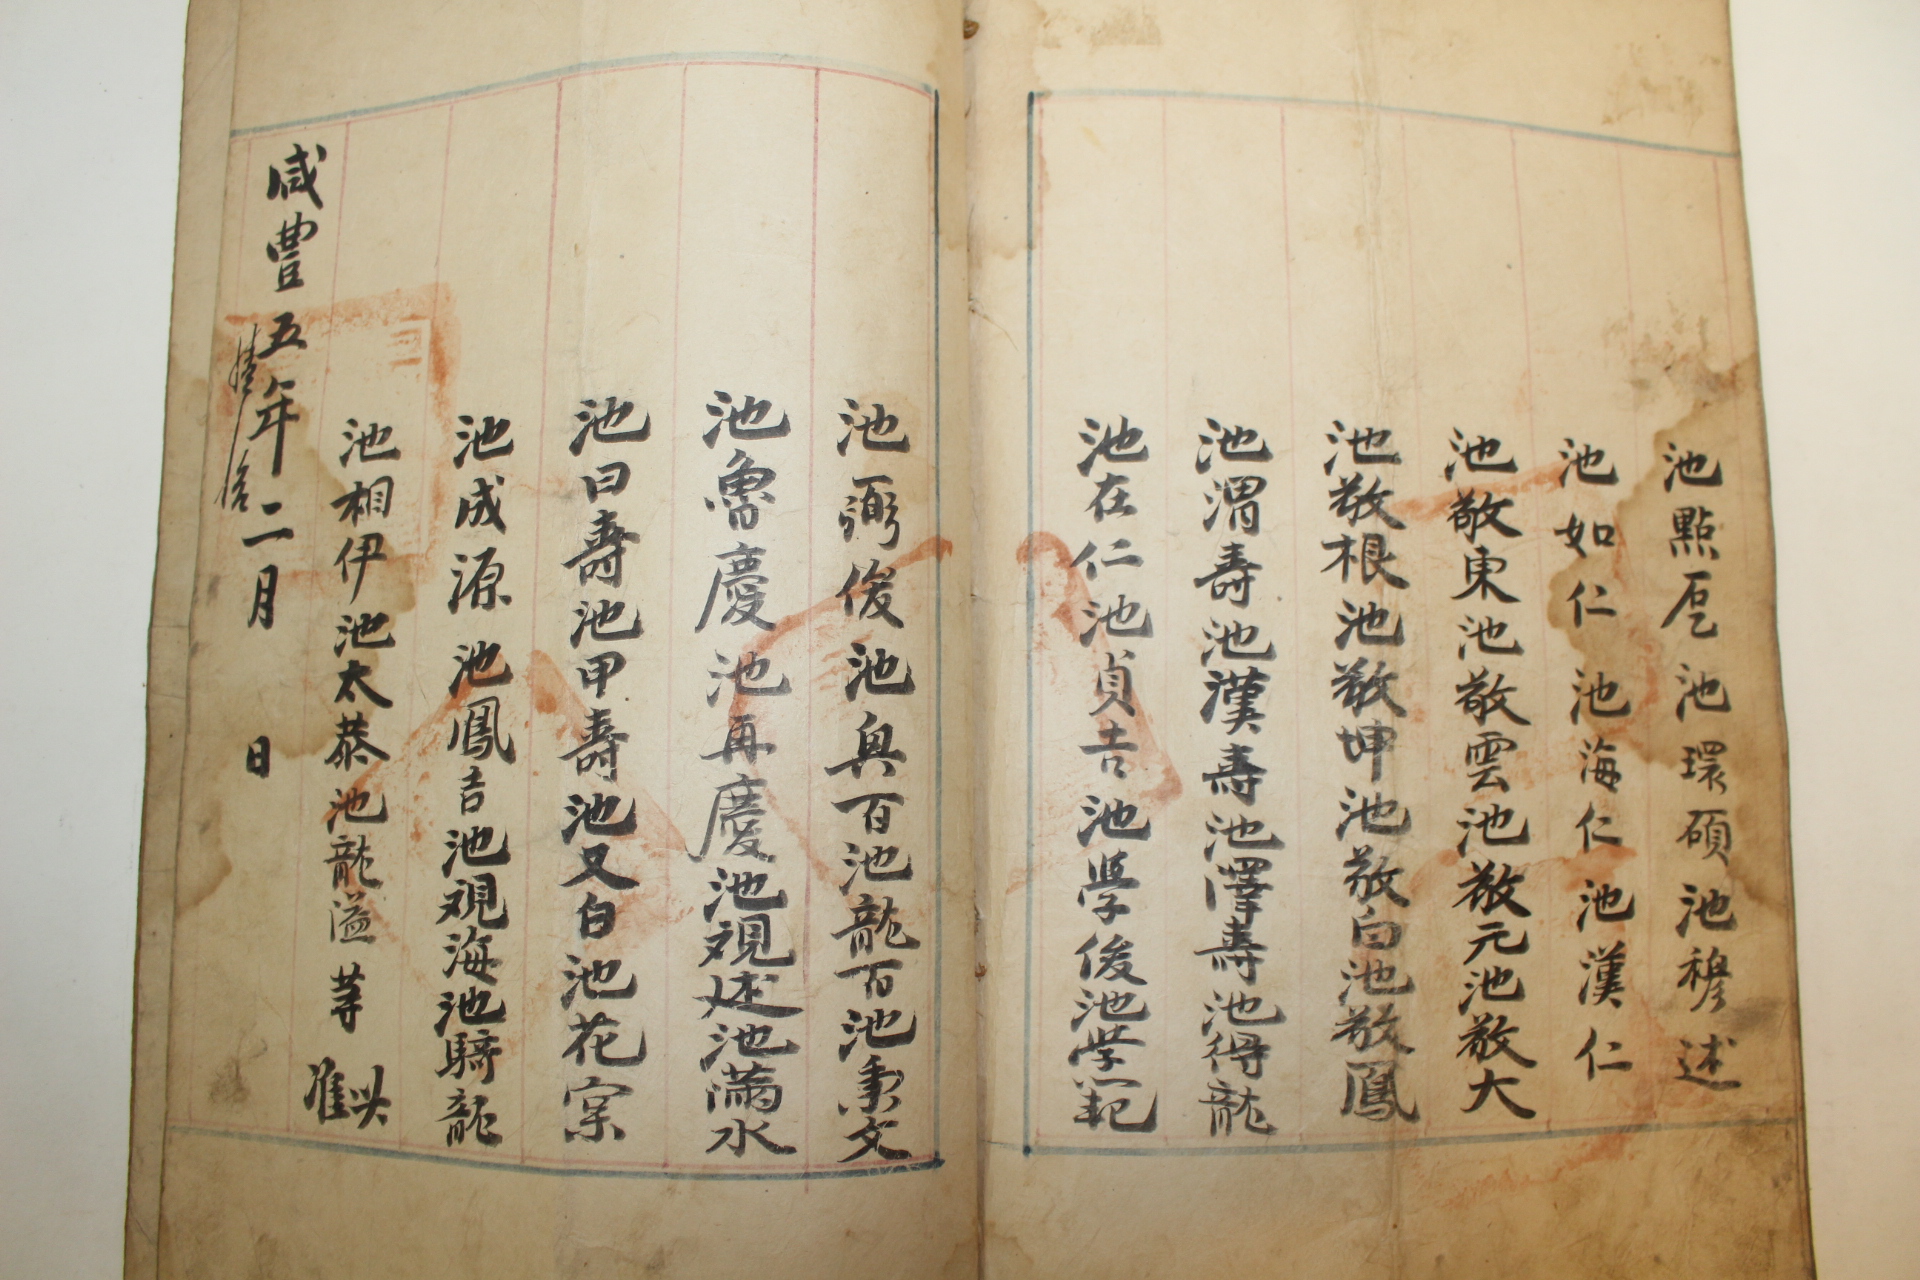 池點 池環碩池穆述
池如仁池海仁池漢仁
池敬東池敬雲池敬元池敬大
池敬根池敬坤池敬白池敬鳳
池渭壽池漢壽池澤壽池得龍
池在仁池貞吉池學俊池學範
池弼俊池 百池龍百池秉文
池魯慶池再慶池觀述池滿水
池曰壽池甲壽池又白池花
池成源池鳳吉池觀海池騎龍
池相伊池太恭池龍溢等
咸豐五年二月 日